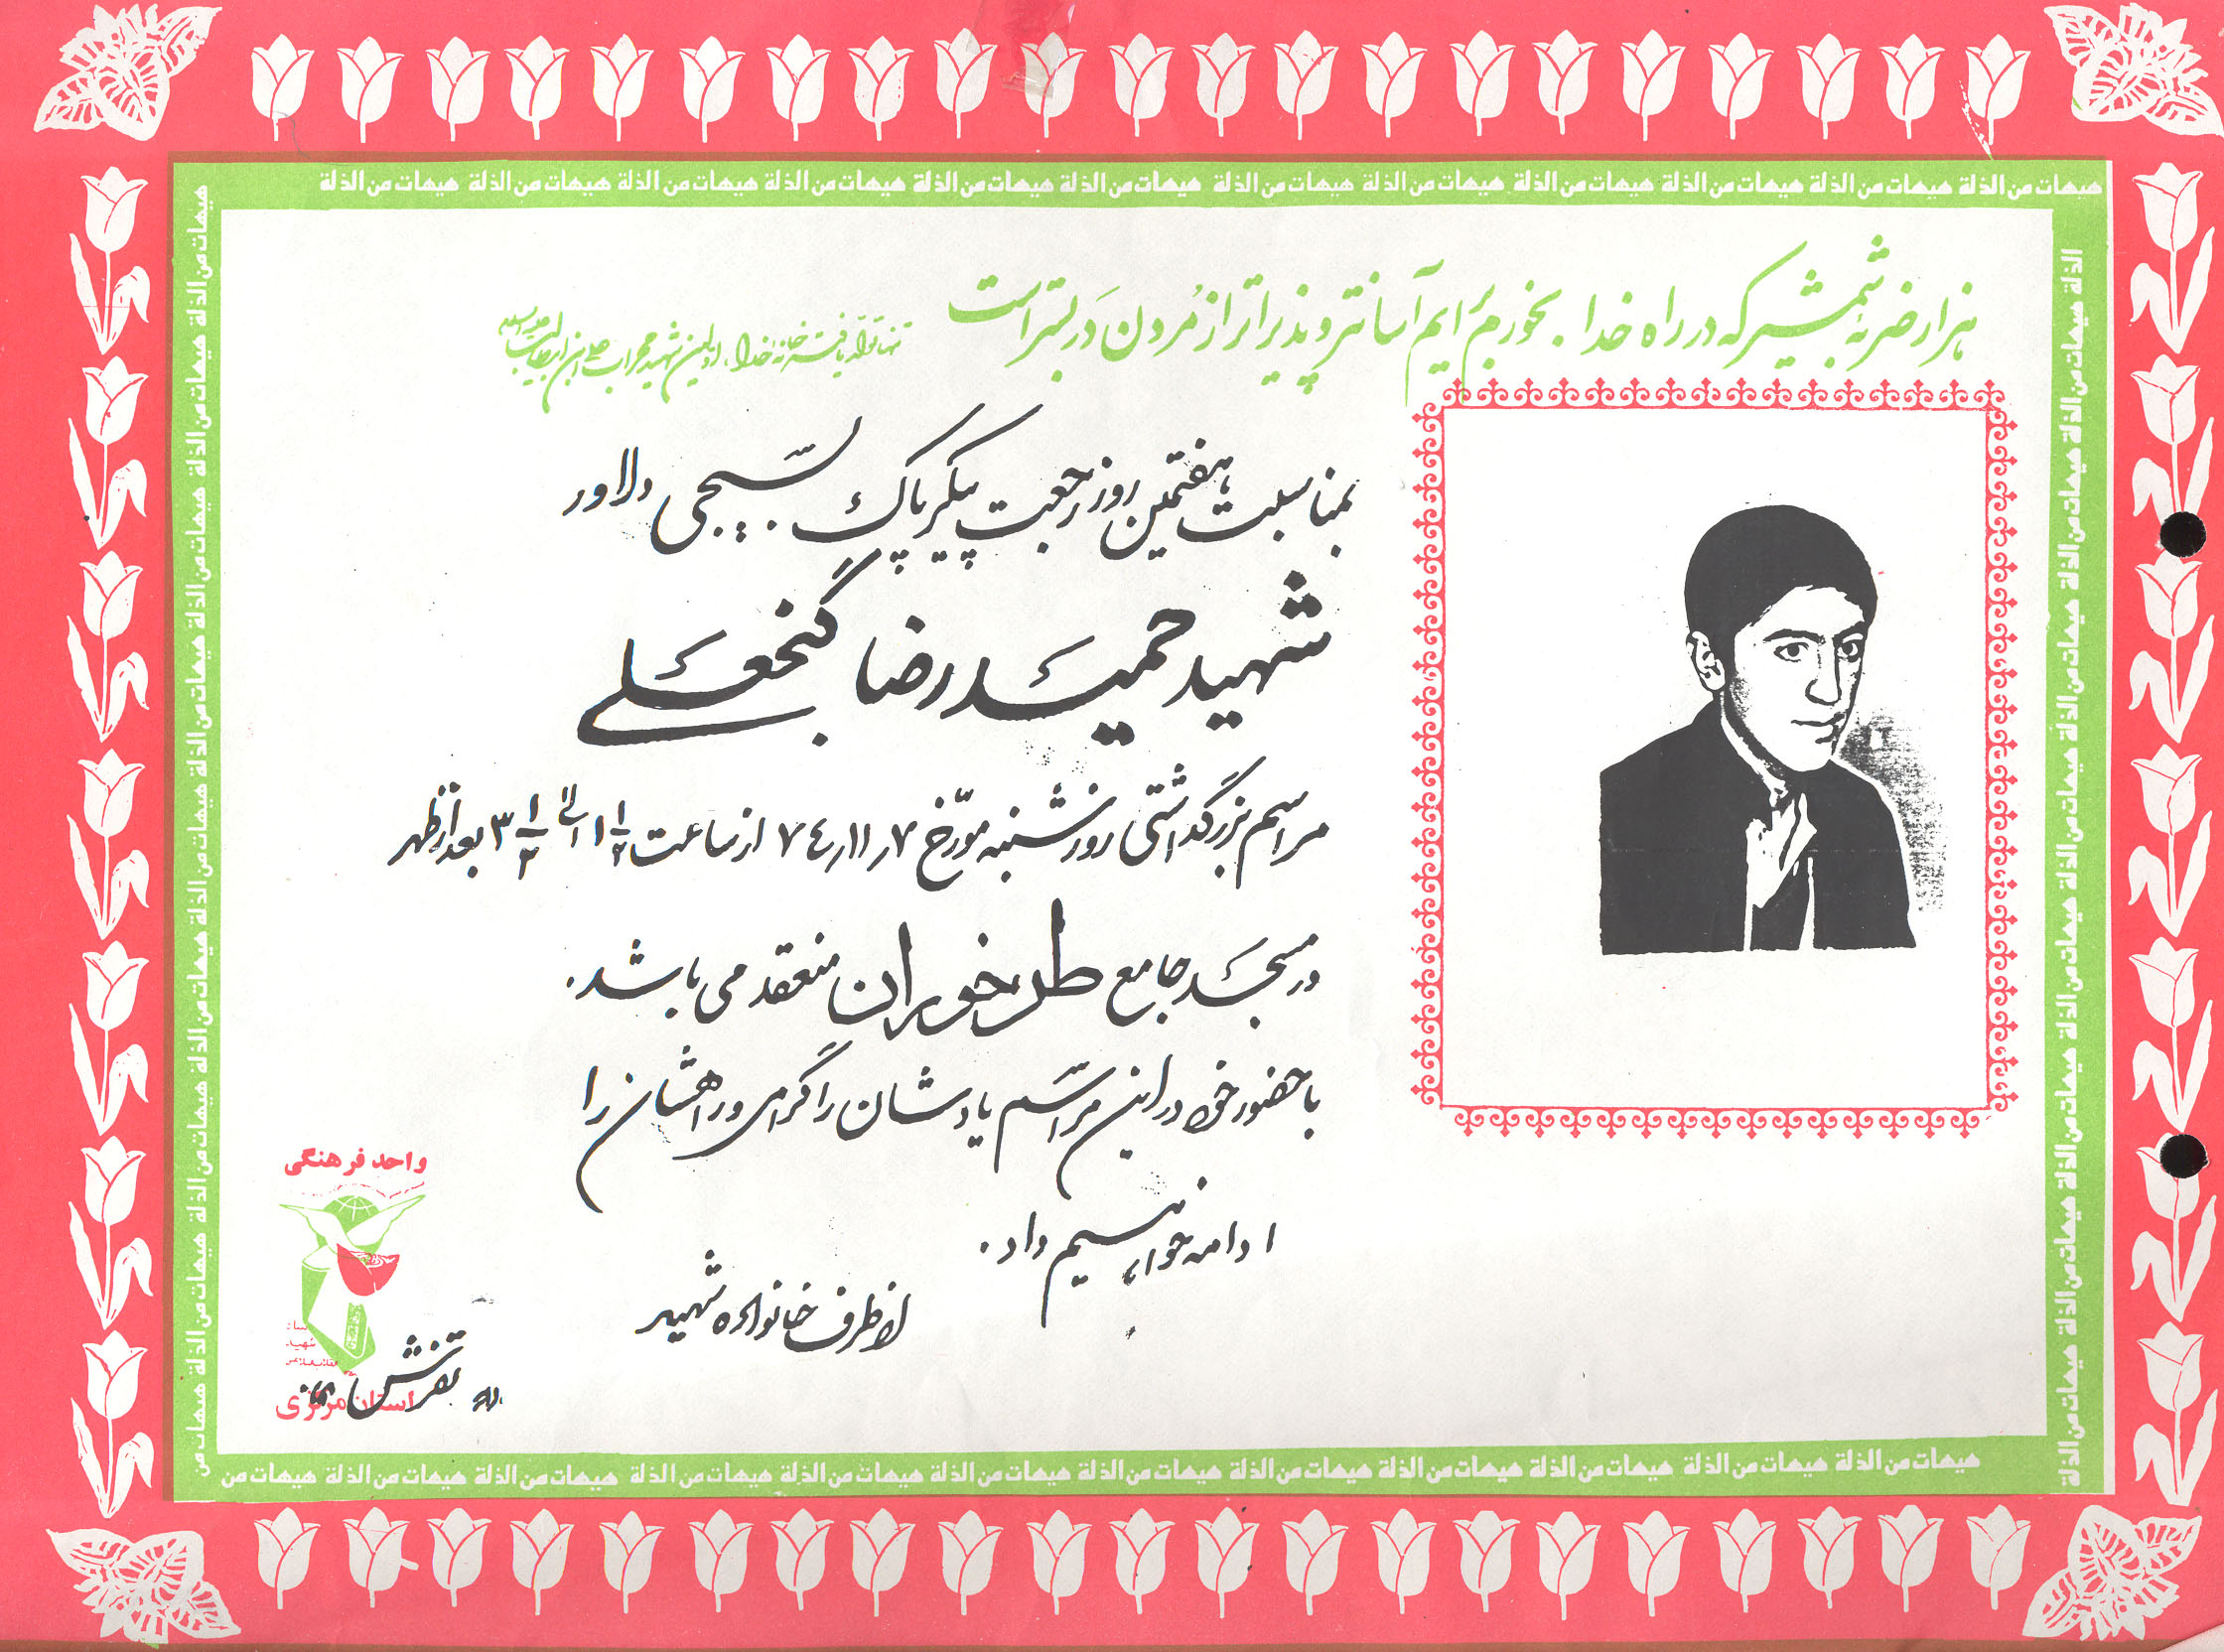 هیهات من الذلة هیهات من الذلة هیهات من الذلة هیهات من الذلة هیهات من الذلة هیهات من الذلة هیهات من الذلة هیهات من الذلة هیهات من الذلة هیهات من الذلة هیهات من الذلة هیهات من الذلة
هزار ضربه شمشیر که در راه خدا بخورم برایم آسانتر و پذیراتر از مُردن دَر بستر است
تنها تولد یافته خانه خدا، اولین شهید محراب علی ابن ابیطالب
بمناسبت هفتمین روز رجعت پیکر پاک بسیجی دلاور
شهید حمید رضا گنجعلی
مراسم بزرگداشتی روز شنبه مورّخ ۷٤٫۱۱٫۷ از ساعت ۱ ۱/۲ الی ۳ ۱/۲ بعد از ظهر
در مسجد جامع طرخوران منعقد می باشد.
با حضور خود در این مراسم یادشان را گرامی و راهشان را
ادامه خواهیم داد.
از طرف خانواده شهید
واحد فرهنگی
شهید
تفرش
استان مرکزی
هیهات من الذلة هیهات من الذلة هیهات من الذلة هیهات من الذلة هیهات من الذلة هیهات من الذلة هیهات من الذلة هیهات من الذلة هیهات من الذلة هیهات من الذلة هیهات من الذلة هیهات من